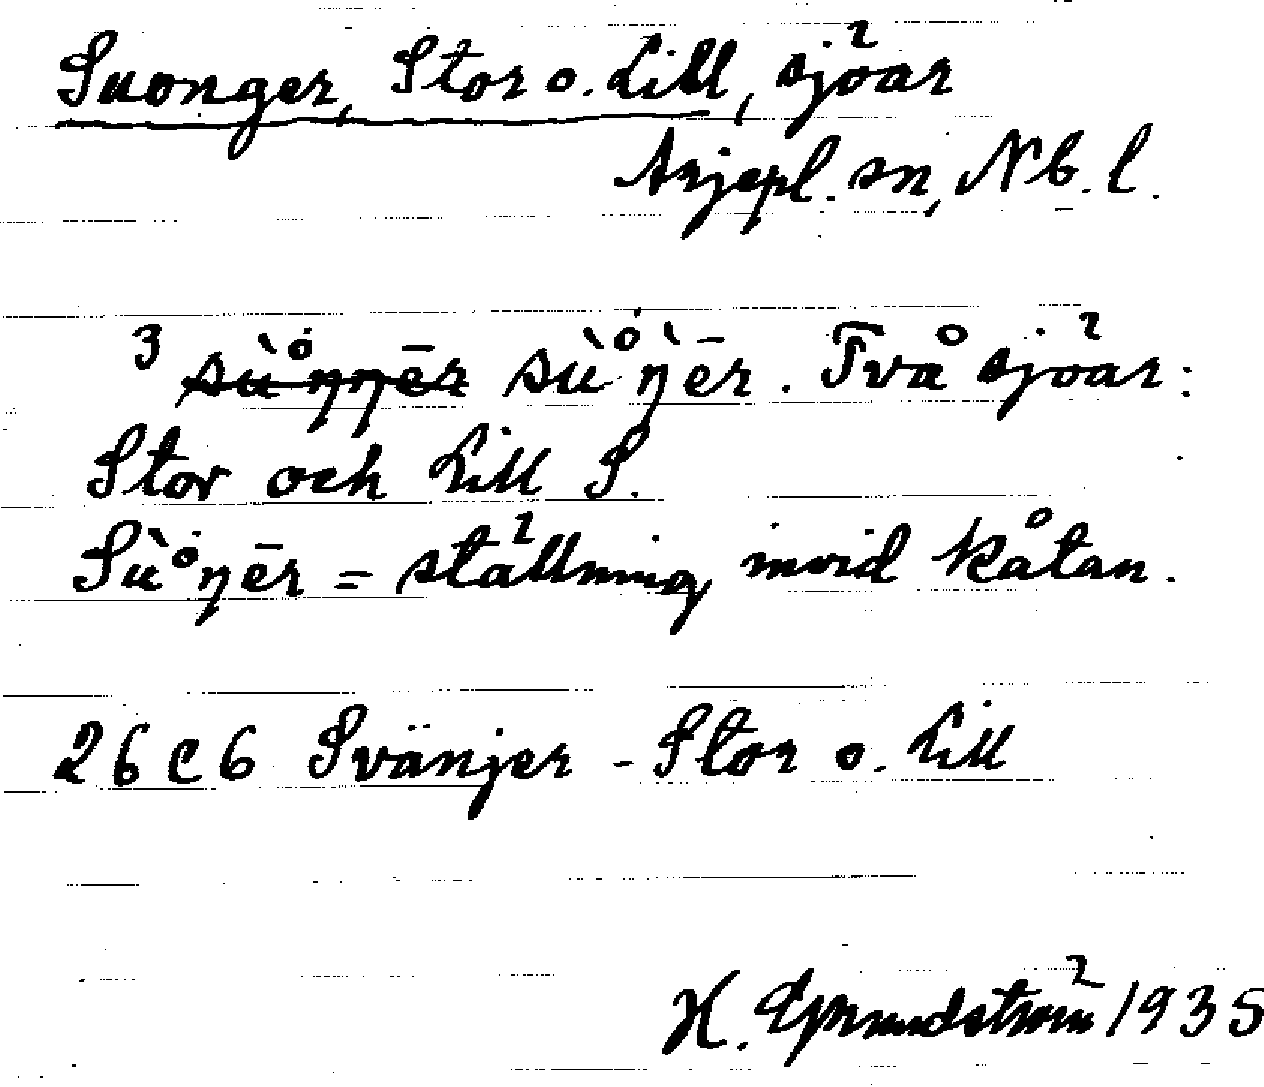 Suonger, Stor o. Lill, sjöar
Arjepl. sn, Nb. l.
3 sù̊ŋŋēr sù̊ŋ̀ēr. Två sjöar:
Stor och Lill S.
Sù̊ŋēr = ställning invid kåtan.
26 C 6 Svänjer - Stor o. Lill
H. Grundström 1935